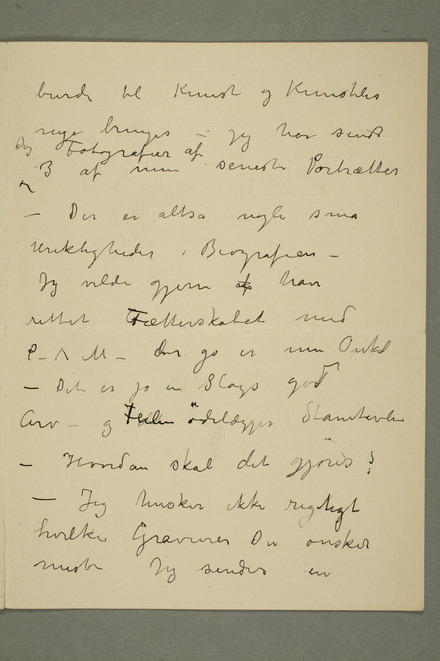 burde til Kunst og Kunstens
nye bruges – jeg har sendt
Dig Fotografier af
3 af mine seneste Portrætter
– Der er altsa nogle sma
Urigtigheder i Biografien –
Jeg vilde gjerne have
rettet Fætterskabet med
P–A M– der jo er min Onkel
– Det er jo en Slags god
Arv – og Feilen ödelægger Stamtavlen
– Hvordan skal det gjöres?
– Jeg husker ikke rigtigt
hvilke Gravurer Du önsker
meste Jeg sender en